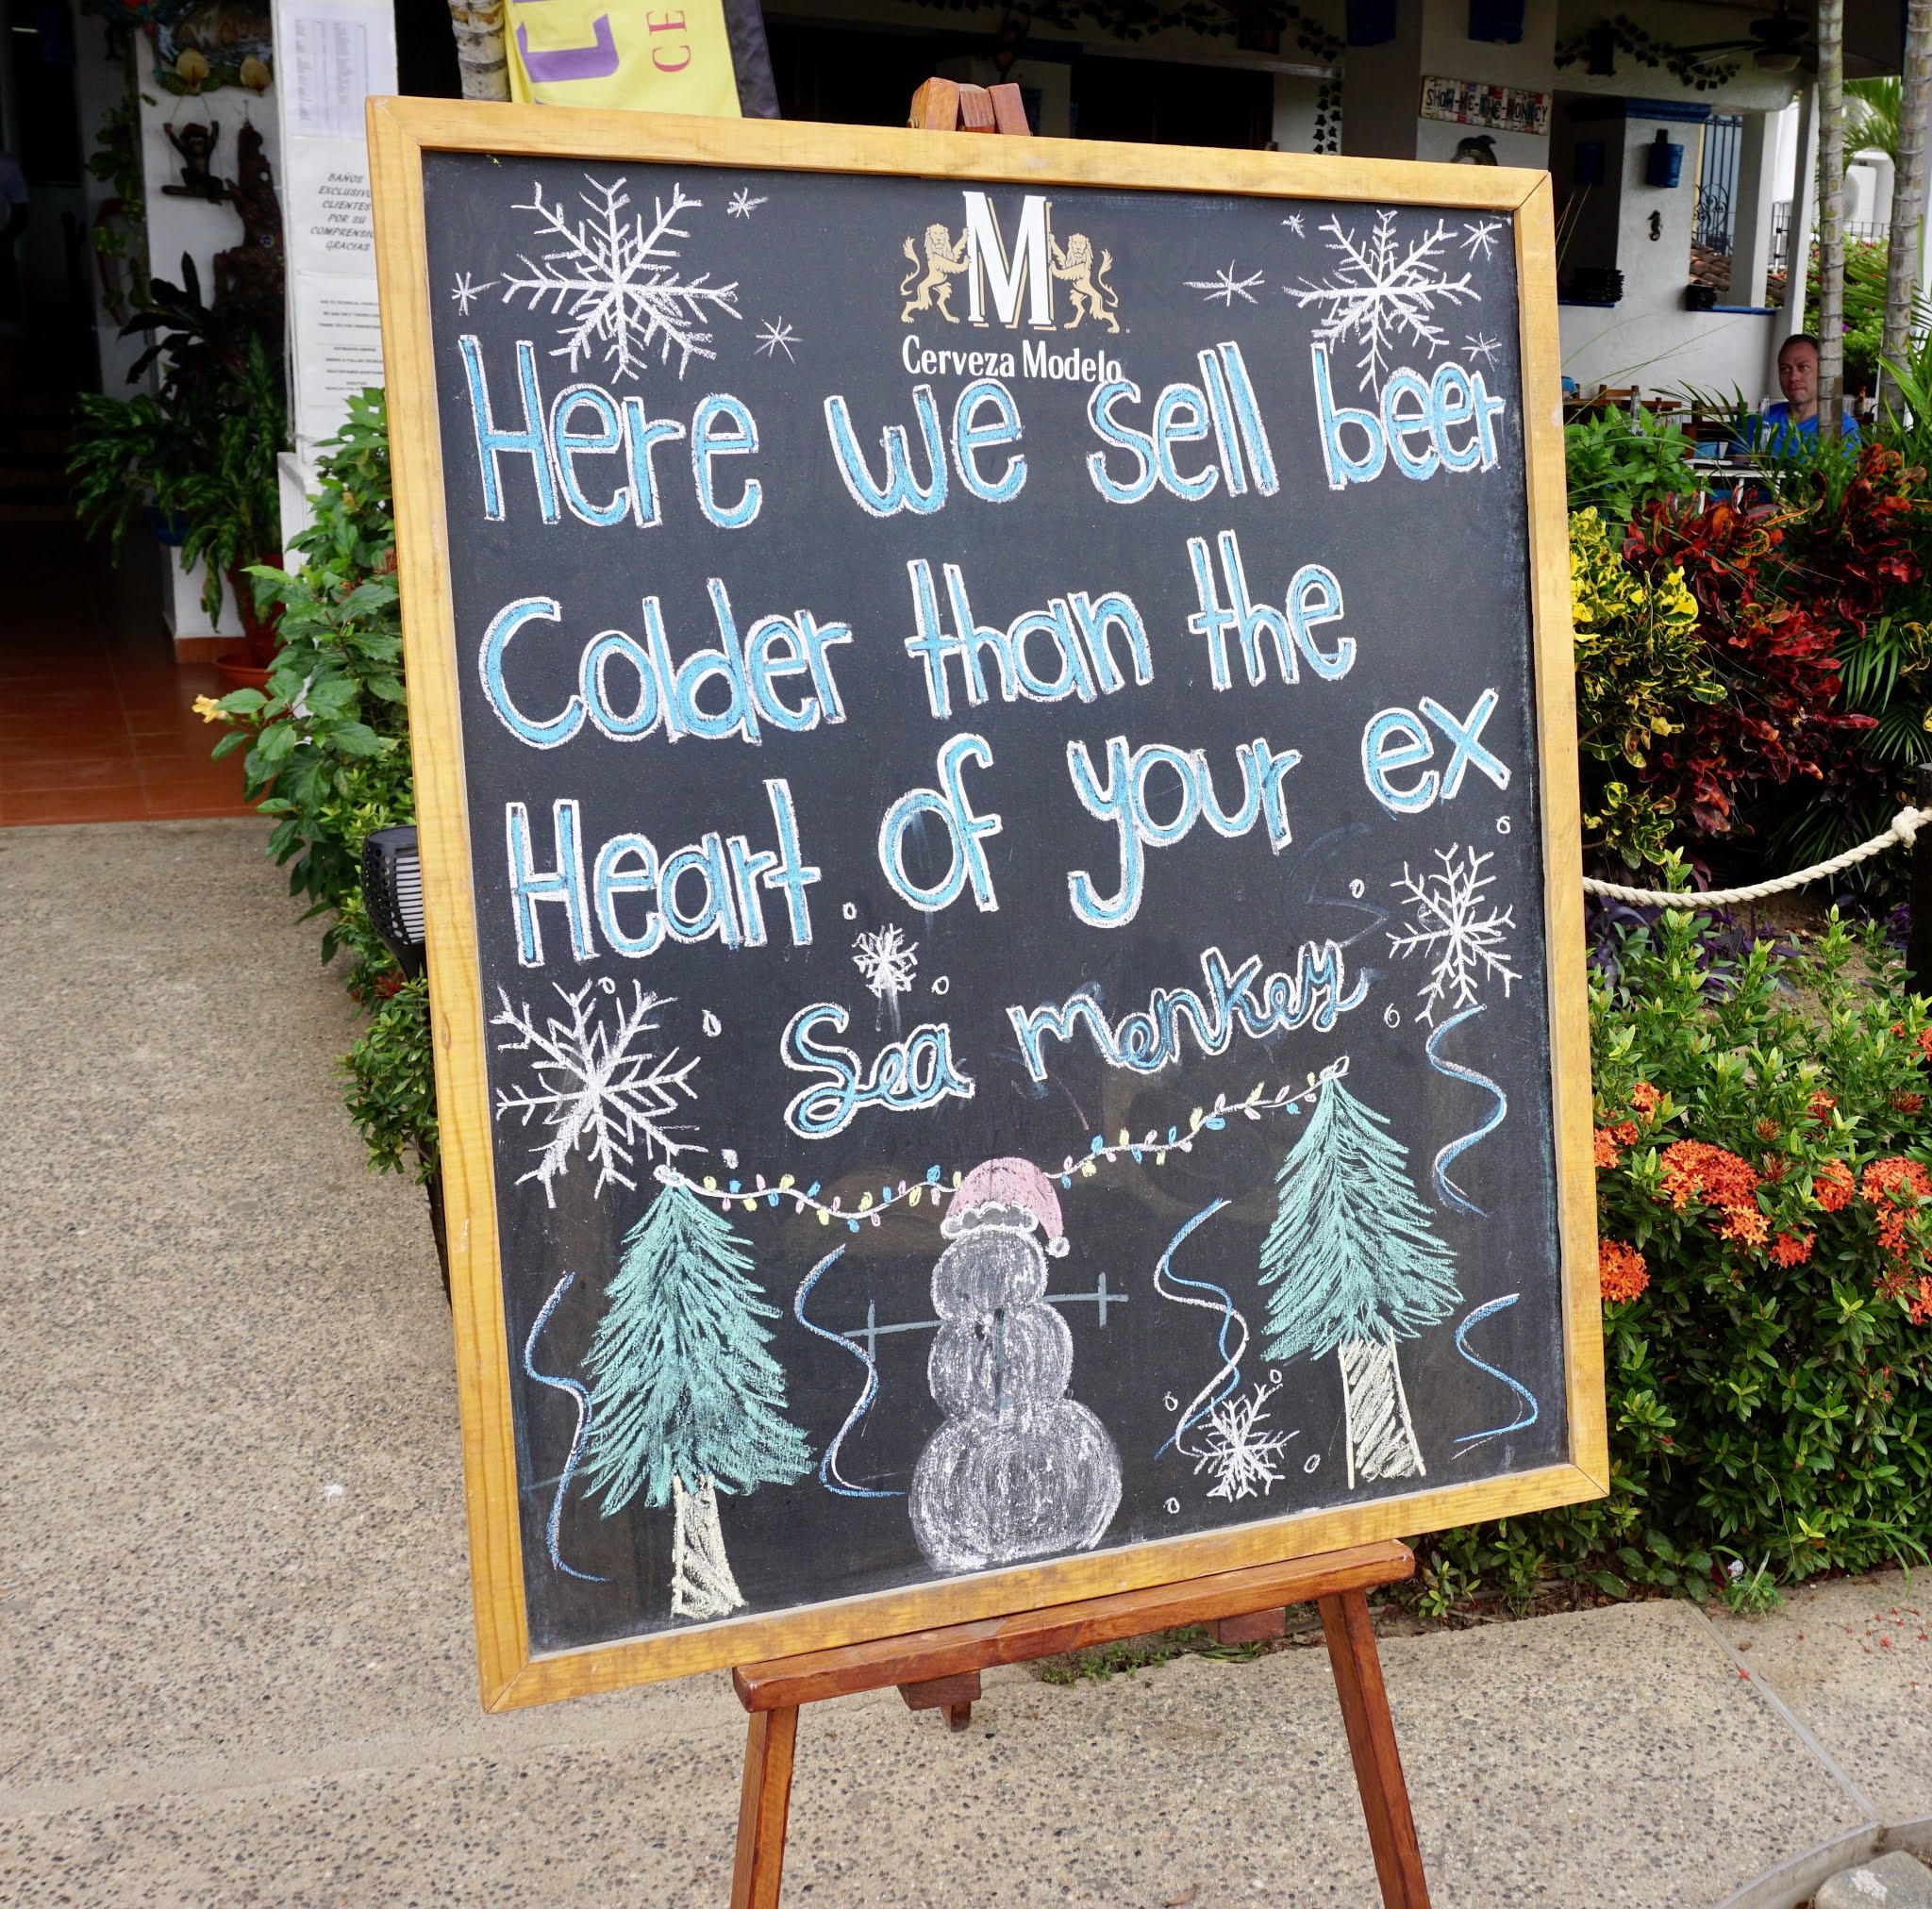 CE
SHOW-ME-THE-MONKEY
BAÑOS
CLIENTES
POR SU
GRACIAS
M
Cerveza Modelo
Here we sell beer
Colder than the
Heart of your ex
Sea Monkey